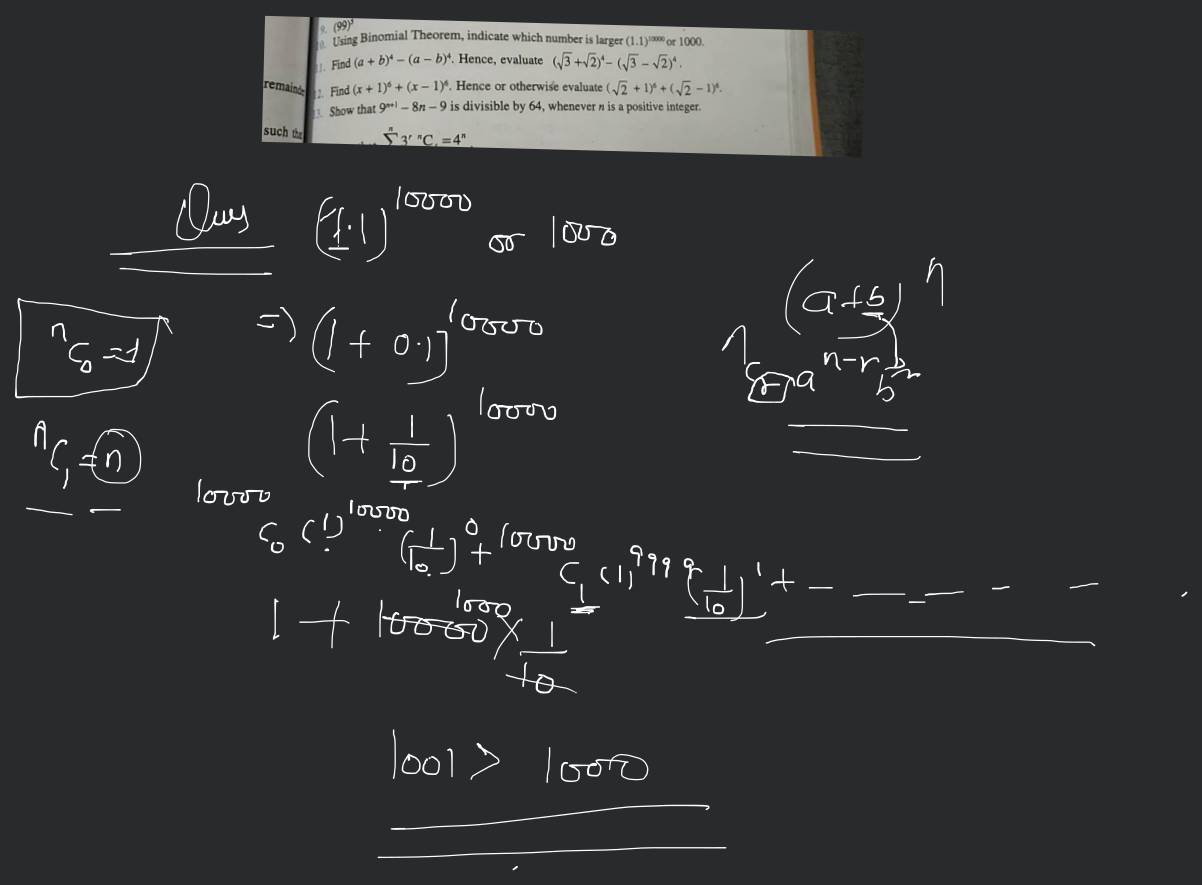 9. (99)⁵
10. Using Binomial Theorem, indicate which number is larger (1.1)¹⁰⁰⁰⁰ or 1000.
11. Find (a + b)⁴ – (a – b)⁴. Hence, evaluate (√3 + √2)⁴ – (√3 – √2)⁴.
12. Find (x + 1)⁶ + (x – 1)⁶. Hence or otherwise evaluate (√2 + 1)⁶ + (√2 – 1)⁶.
13. Show that 9ⁿ⁺¹ – 8n – 9 is divisible by 64, whenever n is a positive integer.
∑ 3ʳ ⁿCᵣ = 4ⁿ
remainde
such tha
Ques (1.1)¹⁰⁰⁰⁰ or 1000
(a+b)ⁿ
ⁿCᵣ aⁿ⁻ʳ bʳ
ⁿC₀ = 1
ⁿC₁ = n
=> (1 + 0.1)¹⁰⁰⁰⁰
(1 + 1/10)¹⁰⁰⁰⁰
¹⁰⁰⁰⁰C₀ (1)¹⁰⁰⁰⁰ (1/10)⁰ + ¹⁰⁰⁰⁰C₁ (1)⁹⁹⁹⁹ (1/10)¹ + – — – — – –
1 + 10000 1000 × 1/10
1001 > 1000